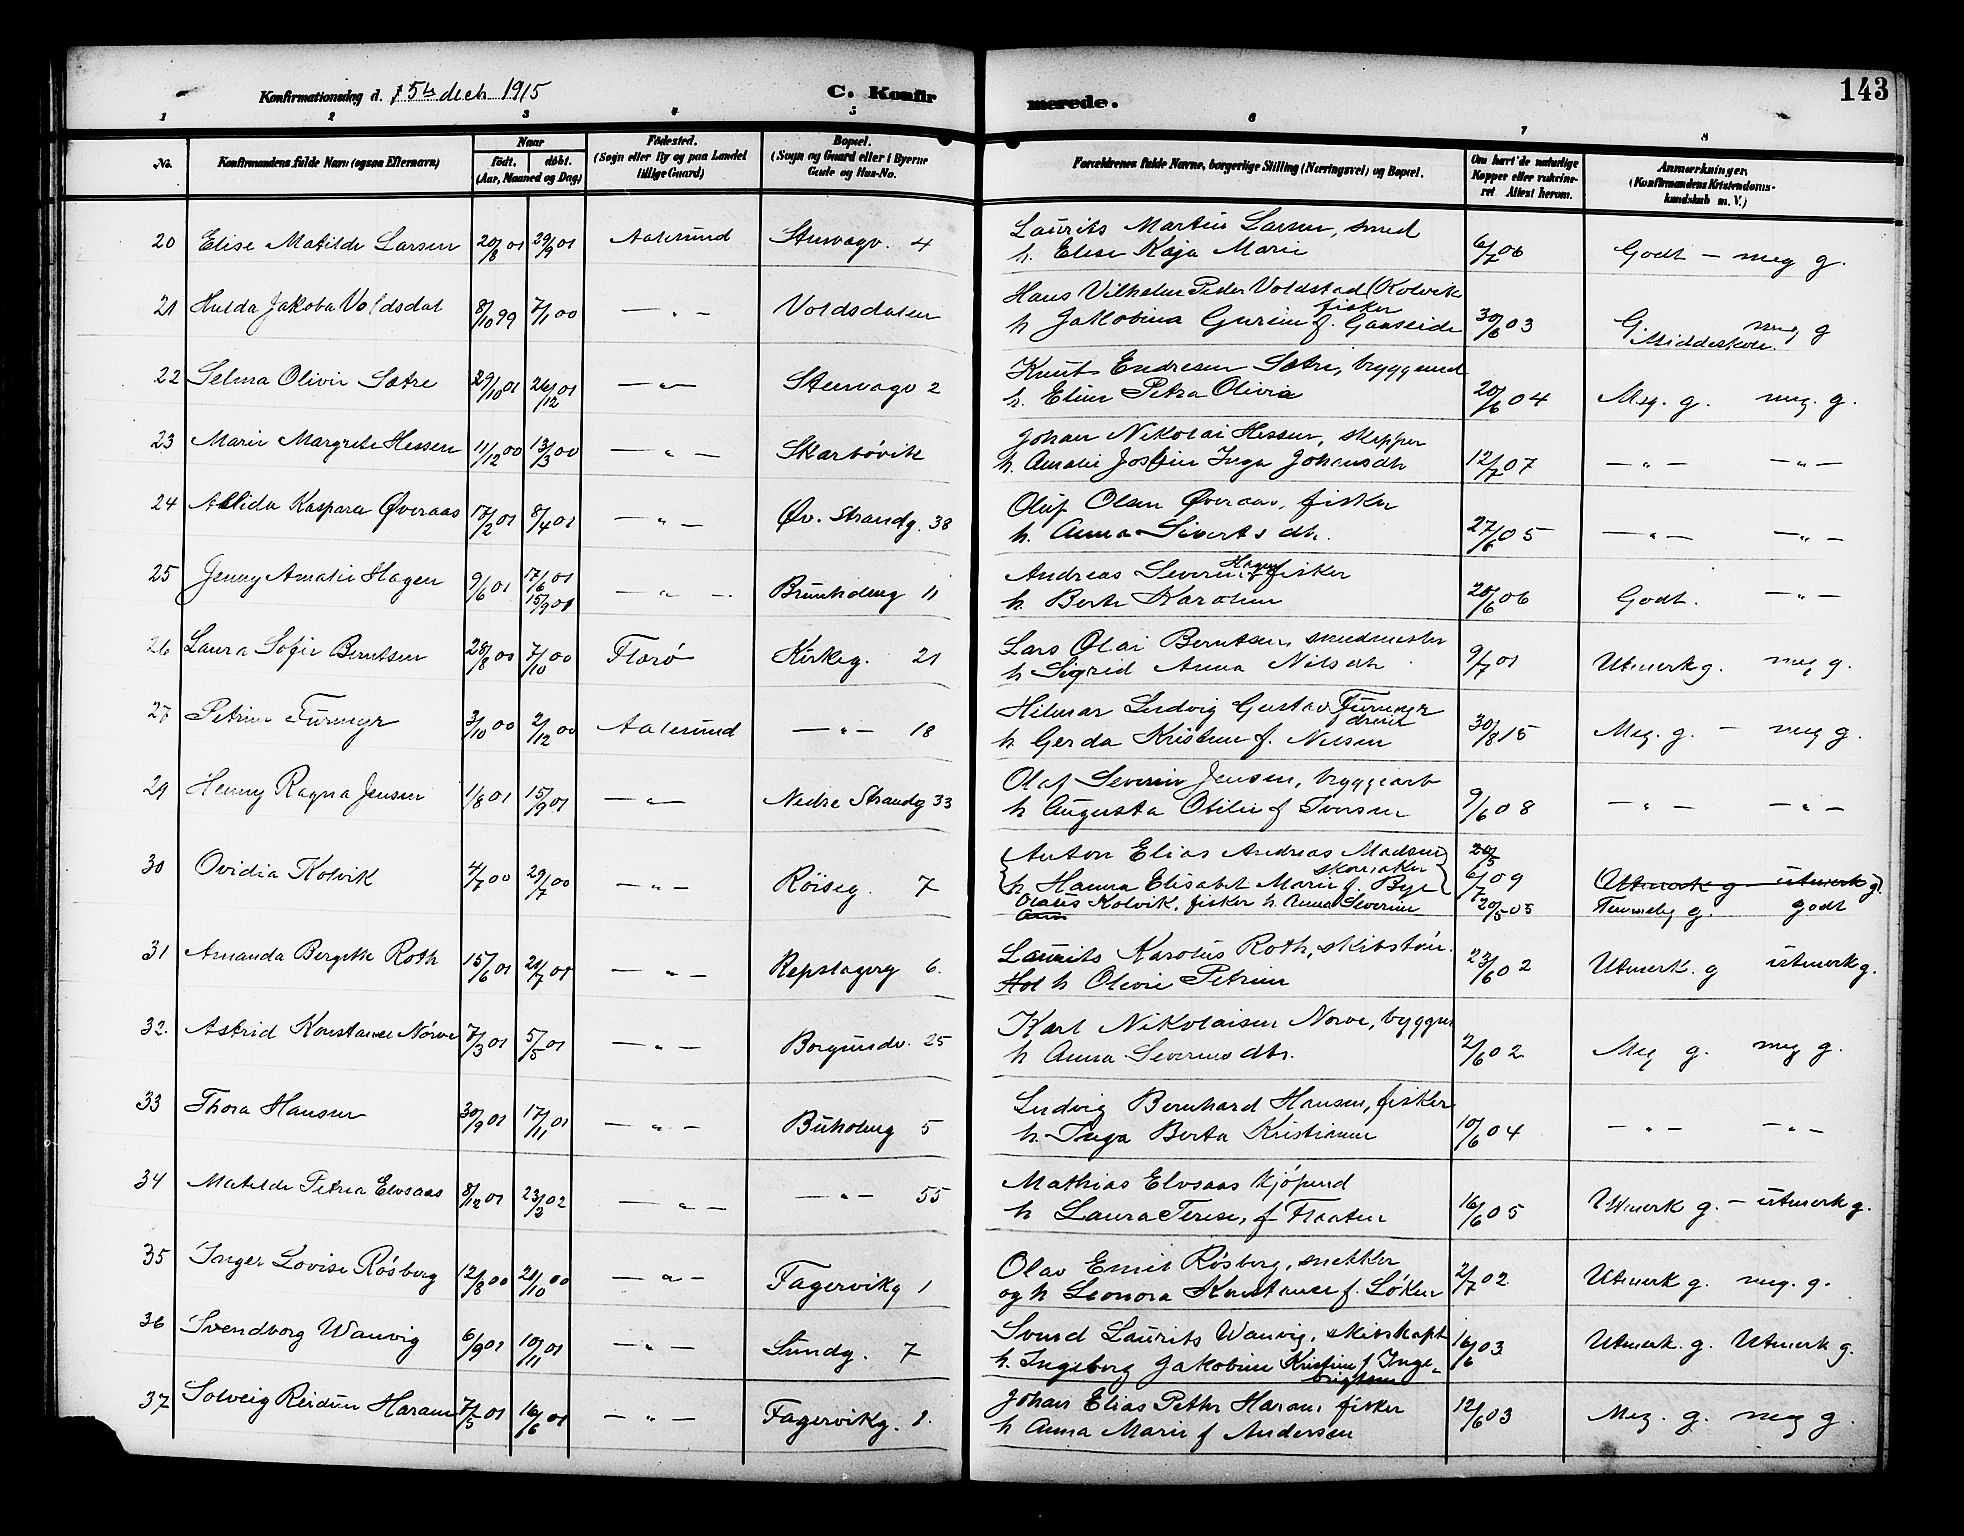 143
Konfirmationsdag d. 5te dech 1915 C. Konfirmerede.
1 2 3 4 5 6 7 8
No. Konfirmandens fulde Navn (ogsaa Efternavn) Naar født. døbt. (Aar, Maaned og Dag) Fødested. (Sogn eller By og paa Landet tillige Gaard) Bopæl. (Sogn og Gaard eller i Byerne Gade og Hus-No. Forældrenes fulde Navne, borgerlige Stilling (Næringsvei) og Bopæl. Om havt de naturlige Kopper eller vakcineret Attest herom. Anmærkninger. (Konfirmandens Kristendomskundskab m. V.)
20 Elise Matilde Larsen 20/8 01 29/9 01 Aalesund Stenvagv. 4 Laurits Martin Larsen, smed
h. Elise Kaja Marie 6/7 06 Godt — meg g.
21 Hulda Jakoba Voldsdal 8/10 99 7/1 00 — " — Voldsdalen Hans Vilhelm Peder Voldstad (Kolvik
fisker
h Jakobina Gurine f. Gaaseide 30/6 03 G. Middeskole. meg g
22 Selma Olivie Sætre 29/10 01 26/12 01 — " — Stenvagv 2 Knut Endresen Sætre, bryggemd
h. Eline Petra Olivia 20/6 04 Meg. g. meg. g.
23 Marie Margrete Hessen 11/12 00 13/3 00 — " — Skarbövik Johan Nikolai Hessen, skipper
h. Amalie Josfine Inga Johansdtr 12/7 07 — " — — " —
24 Alida Kaspara Øveraas 17/2 01 8/4 01 — " — Øv. Strandg. 38 Oluf Olsen Øveraas, fisker
h. Anna Sivertsdtr. 27/6 05 — " — — " —
25 Jenny Amalie Hagen 9/6 01 17/6 01 15/9 01 — " — Brunholmg 11 Andreas Severin Hagen fisker
h. Berte Karoline 20/6 06 Godt. — " —
26 Laura Sofie Berntsen 28/8 00 7/10 00 Florö Kirkeg. 21 Lars Olai Berntsen, smedmester
h Sigrid Anna Nilsdtr 9/7 01 Utmerk g. meg g.
27 Petrine Furmyr 3/10 00 2/12 00 Aalesund — " — 18 Hilmar Ludvig Gustav Furmyr
h Gerda Kristine f. Nilsen 30/8 15 Meg. g. — meg g.
29 Henny Ragna Jensen 1/8 01 15/9 01 — " — Nedre Strandg 33 Olaf Severin Jensen, bryggearb
h Augusta Otilie f Iversen 9/6 08 — " — — " —
30 Ovidia Kolvik 4/7 00 29/7 00 — " — Röiseg. 7 Anton Elias Andreas Madsen
skomaker
h Hanna Elisabet Marie f. Bye 6/7 09 Utmerk g utmerk g
Olaus Kolvik, fisker h. Anna Severine 20/5 05 Temmelig g. godt
31 Amanda Bergitte Roth 15/6 01 21/7 01 — " — Repslagerg 6. Laurits Karolus Roth, skibstöm.
h Olivie Petrine 23/6 02 Utmerk. g utmerk g.
32. Astrid Konstanse Nörve 7/3 01 5/5 01 — " — Borgundv. 25 Karl Nikolaisen Norve, brygges
h Anna Severinsdtr. 2/6 02 Meg g. meg g.
33 Thora Hansen 30/9 01 17/11 01 — " — Buholmg 5 Ludvig Bernhard Hansen, fisker
h. Inga Berta Kristianne 10/6 04 — " — — " —
34 Matilde Petria Elvsaas 8/12 01 23/2 02 — " — — " — 55 Mathias Elvsaas kjöpmd
h Laura Terese, f Flaaten 16/6 05 Utmerk g. — utmerk g.
35 Inger Lovise Rösberg 12/8 00 21/10 00 — " — Fagervikg 1 Olav Emil Rösberg, snekker
og h Leonora Konstanse f. Löken 2/7 02 Utmerk g. meg. g.
36 Svendborg Wanvig 6/9 01 10/11 01 — " — Sundg. 7 Svend Laurits Wanvig, skibskapt
h. Ingeborg Jakobine Kristine f. Inge-
brigtsen 16/6 03 Utmerk. g. Utmerk g.
37 Solveig Reidun Haram 7/5 01 16/6 01 — " — Fagervikg. 1. Johan Elias Petter Haram fisker
h Anna Marie f Andersen 12/6 03 Meg. g. meg g.